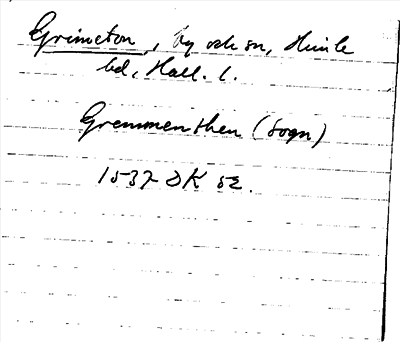 Grimeton, by och sn, Himle
hd, Hall. l.
Gremmenthen (sogn)
1537 DK 52.